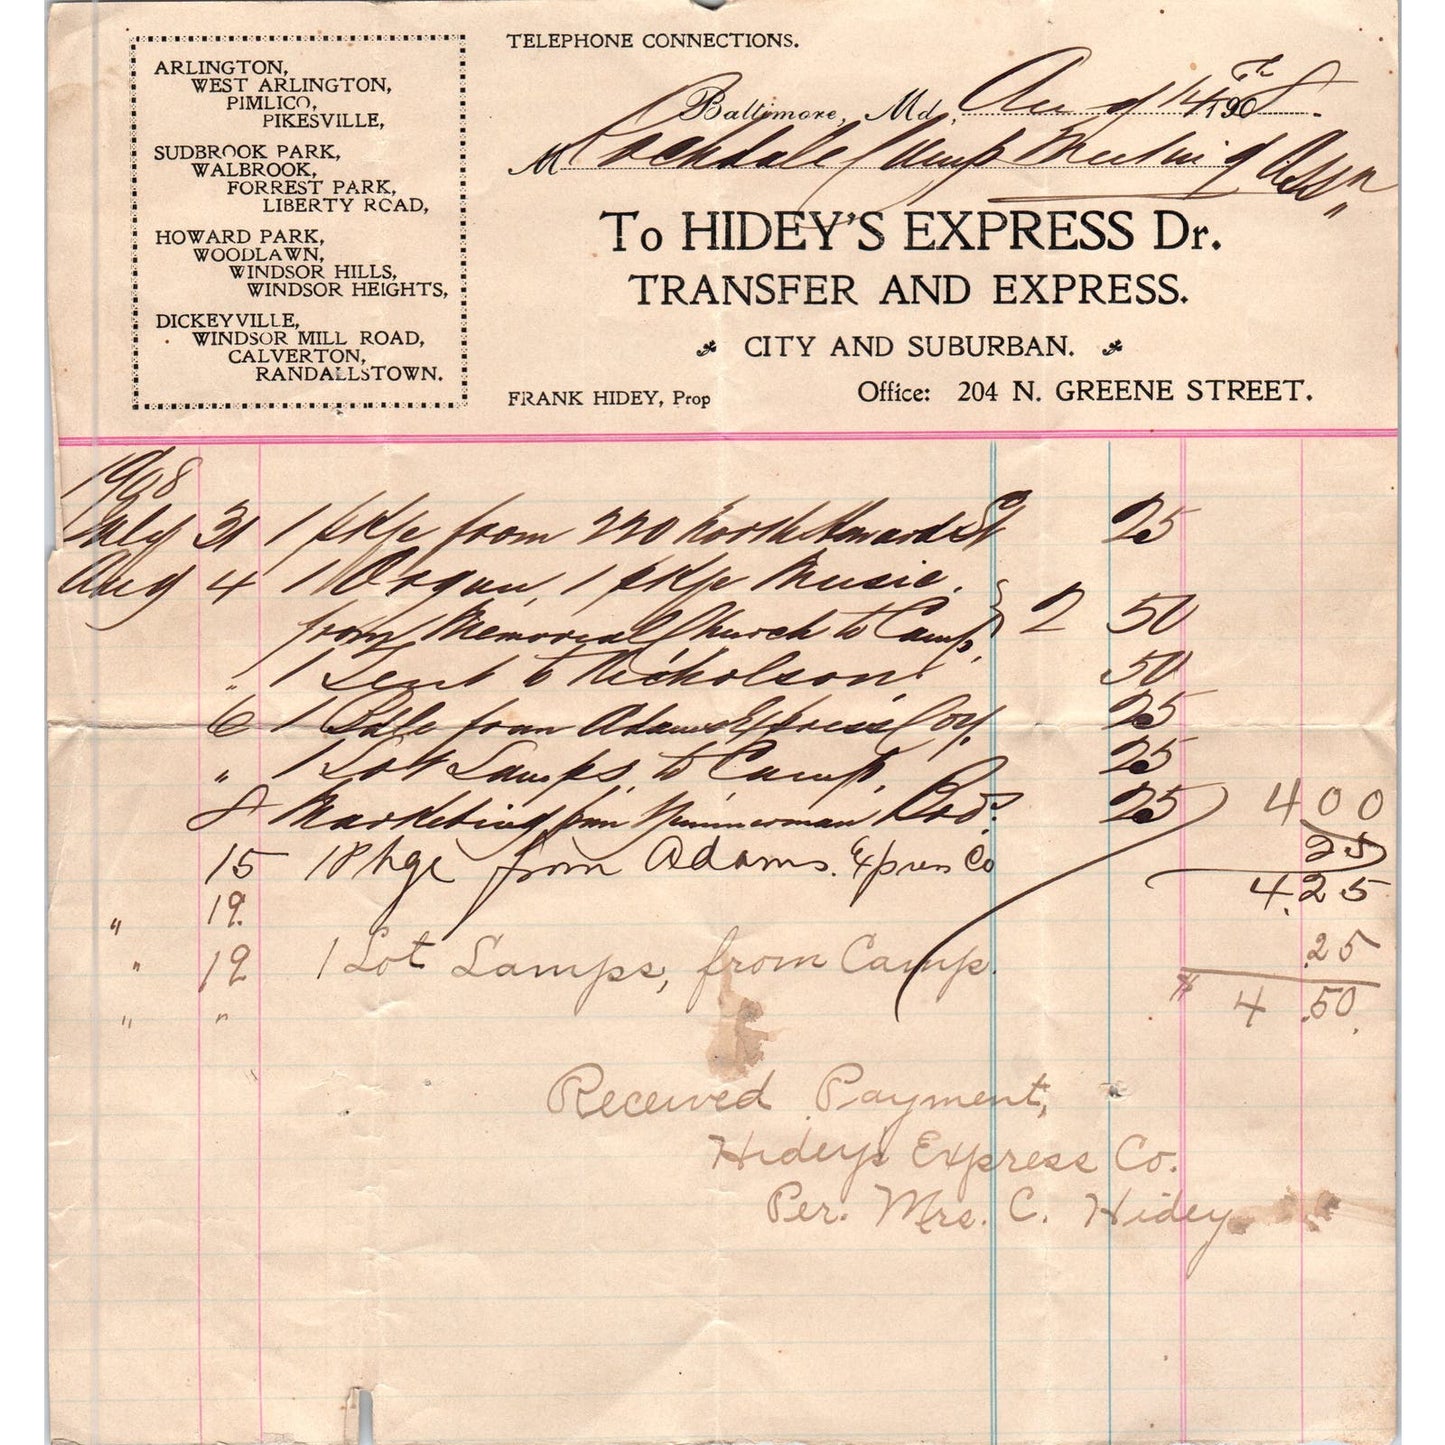 ARLINGTON,
WEST ARLINGTON,
PIMLICO,
PIKESVILLE,
SUDBROOK PARK,
WALBROOK,
FORREST PARK,
LIBERTY ROAD,
HOWARD PARK,
WOODLAWN,
WINDSOR HILLS,
WINDSOR HEIGHTS,
DICKEYVILLE,
WINDSOR MILL ROAD,
CALVERTON,
RANDALLSTOWN.
TELEPHONE CONNECTIONS.
Baltimore, Md, Aug 14th 1908.
M Rockdale Camp Meeting Ass'n
To HIDEY'S EXPRESS Dr.
TRANSFER AND EXPRESS.
CITY AND SUBURBAN.
FRANK HIDEY, Prop
Office: 204 N. GREENE STREET.
1908
July 31 1 pkge from 220 North Howard St 25
Aug 4 1 Organ, 1 pkge Music.
from Memorial Church to Camp, 2 50
" 1 Tent to Nicholson 50
6 1 Bale from Adams Express Coy. 25
" 1 Lot Lamps, to Camp, 25
8 Marketing from Zimmerman Bros. 25 4 00
25
15 1 Pkge from Adams. Express Co 4.25
" 19.
" 19 1 Lot Lamps, from Camp. .25
" " $ 4 .50.
Received Payment,
Hidey's Express Co.
Per. Mrs. C. Hidey